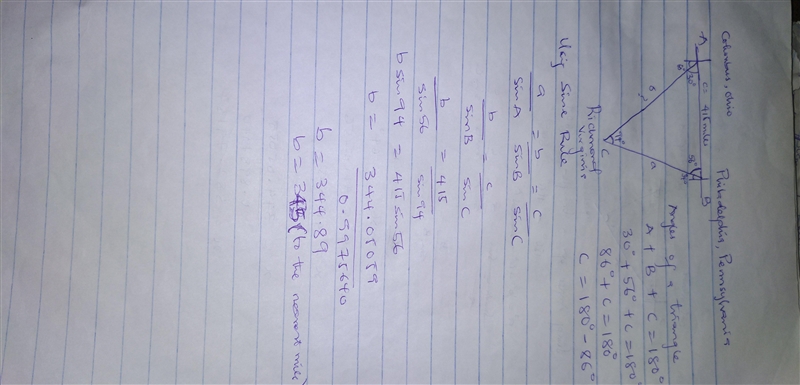 Columbus, Ohio
Philadelphia, Pennsylvania
A
c = 415 miles
B
30°
56°
b
a
94°
C
Richmond
Virginia
Angles of a triangle
A + B + C = 180°
30° + 56° + C = 180°
86° + C = 180°
C = 180° - 86°
Using Sine Rule
a = b = c
sinA sinB sinC
b = c
sinB sinC
b = 415
sin56 sin94
b sin94 = 415 sin56
b = 344.05059
0.9975640
b = 344.89
b = 345 (to the nearest mile)